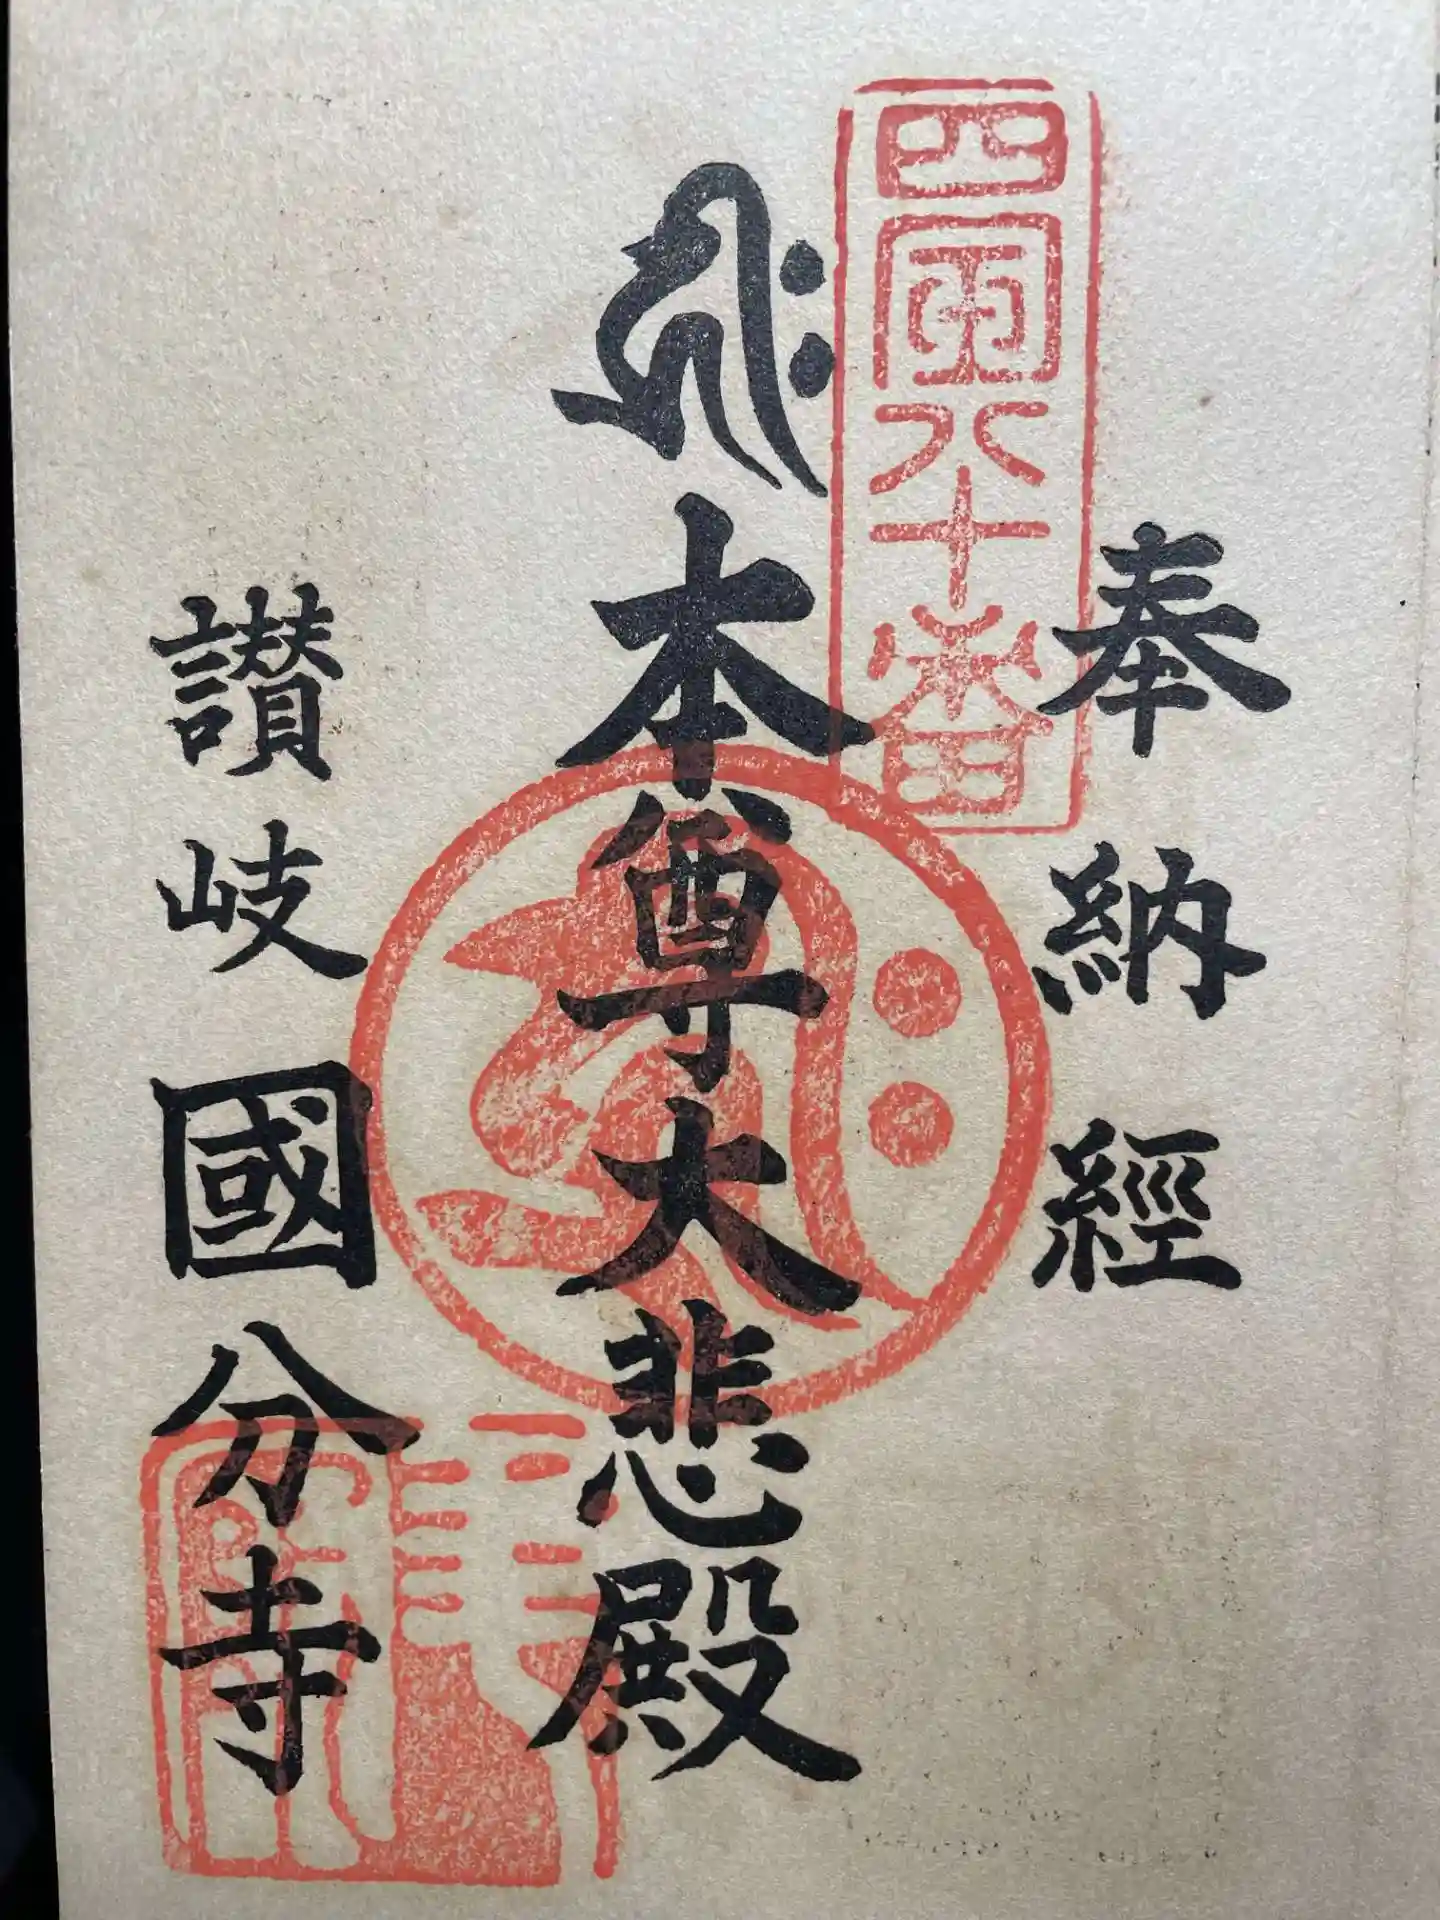 奉納經
四國八十番
𑖮𑖿𑖨𑖱𑖾
本尊大悲殿
讃岐國分寺